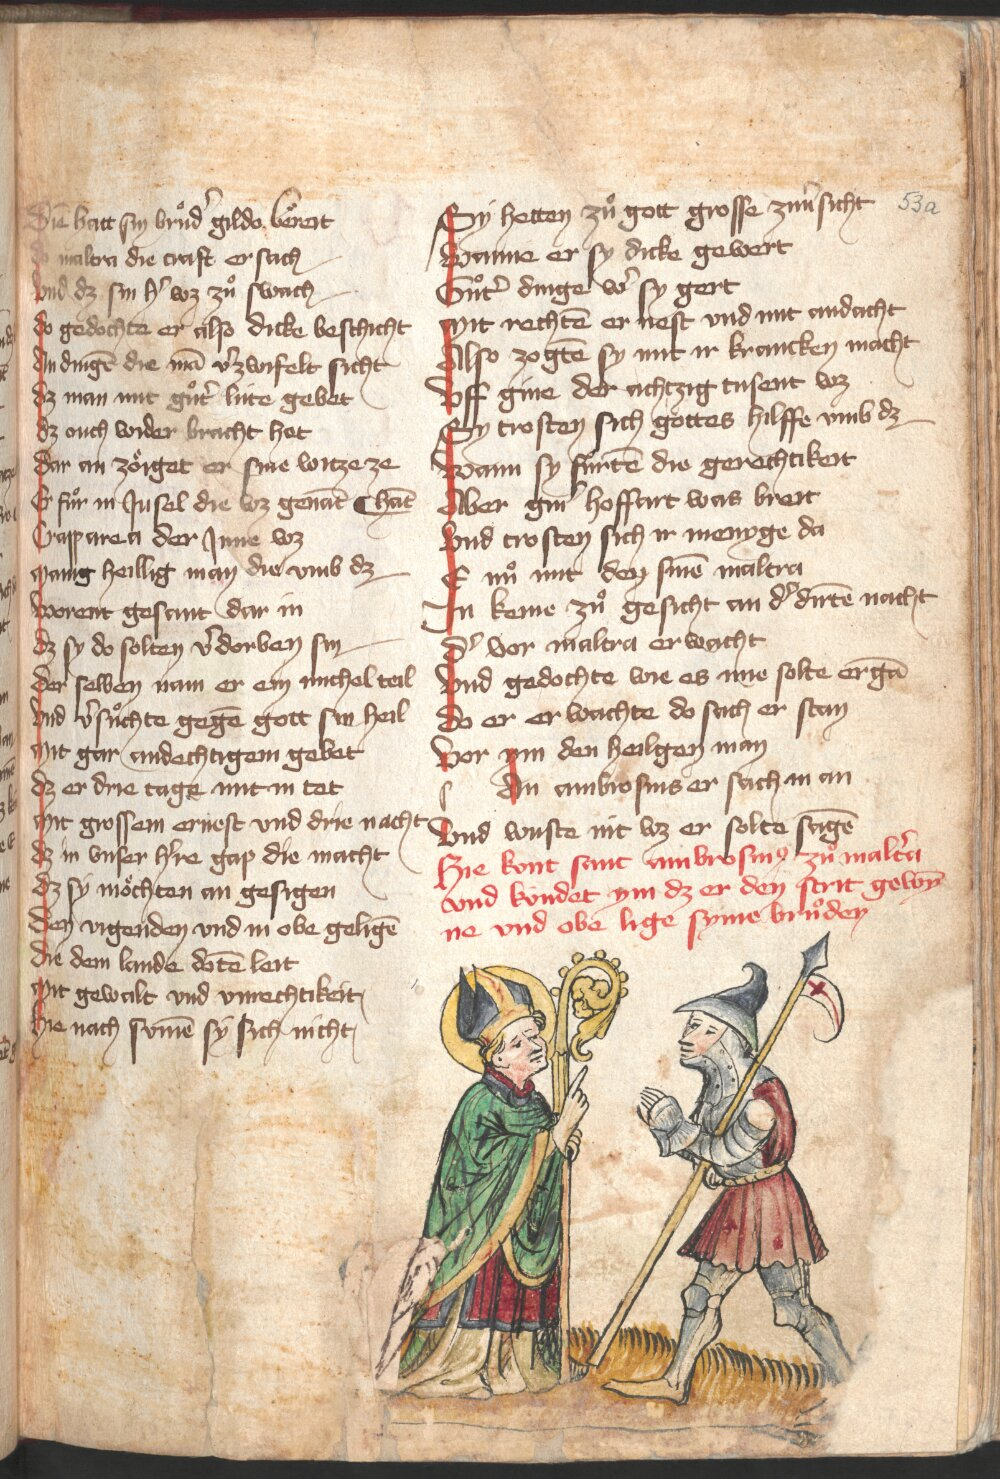 Die hatt sin brůdˀ gildo bereit
Do maltra die craft ersach
Vnd dz sin hˀ wz zů swach
So gedochte er alß dicke beschicht
An dingē die mā vˀzwifelt sicht
Dz man mit gůtˀ lúte gebet
Dz ouch wider bracht het
Dar an zöiget er sine witze ze
Er fůr in Jnsel die wz genāt hāt
Crapparea der Jnne wz
Manig heillig man die vmb dz
Worent gesant dar in
Dz sy do solten vˀdorben sin
Der selben nam er ein michel teil
Vnd vˀsůchte gegē gott sin heil
Mit gar andechtigem gebet
Dz er drie tage mit in tet
Mit grossem ernest vnd drie nacht
Dz in vnser hˀre gap die macht
Dz sy möchten an gesigen
Den vigenden vnd in obe geligē
Die dem lande dotē leit
Mit gewalt vnd vnrechtikeit
Hie nach sumē sy sich nicht
Sy hetten zů gott grosse zuuˀsicht
53a
Wanne er sy dicke gewert
Gůtˀ dinge wˀ sy gert
Mit rechtē ernest vnd mit andacht
Also zogtē sy mit ir krancken macht
Vff gine der achtzig tusent wz
Sy trosten sich gottes hilffe vmb dz
Wann sy fürtē die gerechtikeit
Aber ginˀ hoffart was breit
Vnd trosten sich ir menyge da
E nů mit den sinē maltra
In keme zů gesicht an dˀ dirtē nacht
Dˀ vor maltra erwacht
Vnd gedochte wie es ime solte ergā
Do er erwachte do sach er stan
Vor ym den heilgen man
An ambrosius er sach in an
Vnd wuste nit wz er solte sagē
Hie kont sant ambrosius zů maltˀa
vnd kündet ym dz er den strit gewyn
ne vnd obe lige syme brůder